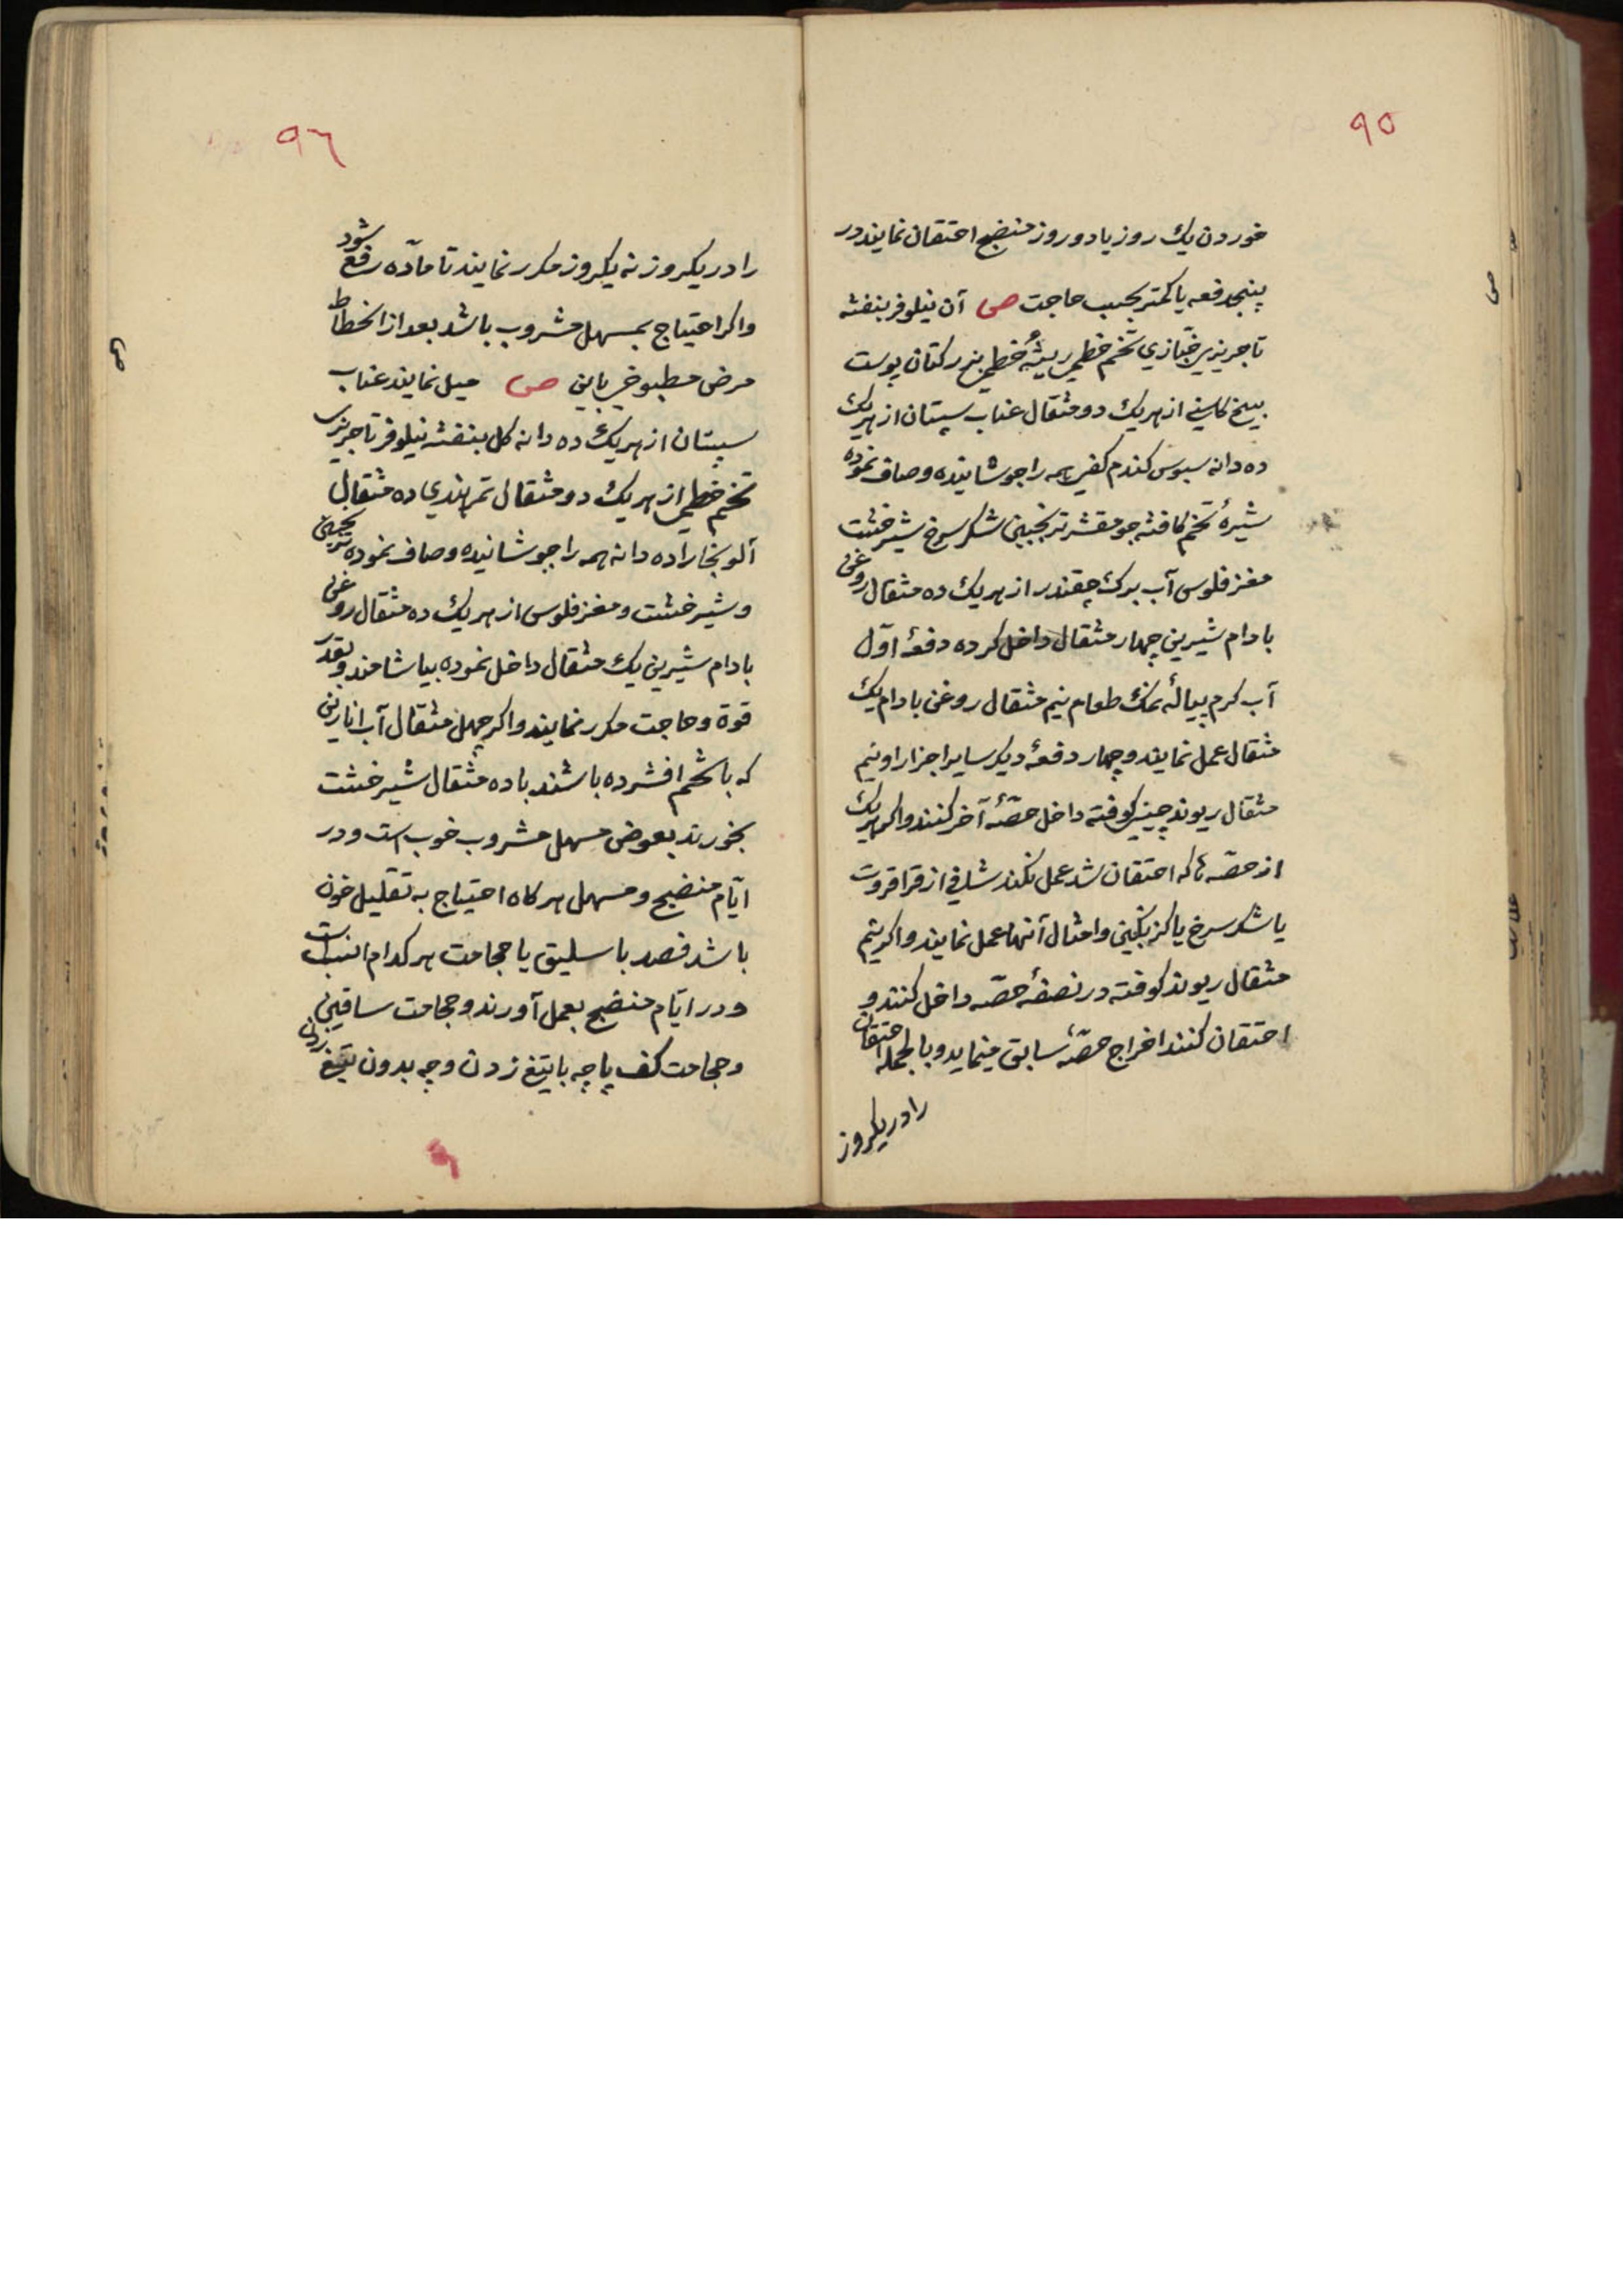 ٩٥
خوردن یک روز یا دو روز منضج احتقان نمایند در
پنجدفعه یا کمتر بحسب حاجت ص آن نیلوفر بنفشه
تاجریزی خبّازی تخم خطمی ریشهٔ خطمی بزرکتان پوست
بیخ کاسنی از هریک دو مثقال عناب سپستان از هریک
ده دانه سبوس کندم کفی همه را جوشانیده و صاف نموده
شیرهٔ تخم کافشه جو مقشر ترنجبین شکر سرخ شیرخشت
مغز فلوس آب برک چقندر از هریک ده مثقال روغن
بادام شیرین چهار مثقال داخل کرده دفعهٔ اوّل
آب کرم پیالهٔ نمک طعام نیم مثقال روغن بادام یک
مثقال عمل نمایند و چهار دفعهٔ دیکر سایر اجزا را و نیم
مثقال ریوند چینی کوفته داخل حصّهٔ آخر کنند و اکر هریک
از حصّه‌ٔ که احتقان شد عمل نکند شافی از قراقروت
یا شکر سرخ یا کزنکبین و امثال آنها عمل نمایند و اکر نیم
مثقال ریوند کوفته در نصفهٔ حصّه داخل کنند و
احتقان کنند اخراج حصّهٔ سابق مینماید و بالجمله احتقان
را در یکروز
٩٦
را در یکروز نه یکروز مکرر نمایند تا مادّه رفع شود
و اکر احتیاج بمسهل مشروب باشد بعد از انحطاط
مرض مطبوخی باین ص میل نمایند عناب
سپستان از هریک ده دانه کل بنفشه نیلوفر تاجریزی
تخم خطمی از هریک دو مثقال تمر هندی ده مثقال
آلو بخارا ده دانه همه را جوشانیده و صاف نموده ترنجبین
و شیرخشت و مغز فلوس از هریک ده مثقال روغن
بادام شیرین یک مثقال داخل نموده بیاشامند و بقدر
قوة و حاجت مکرر نمایند و اکر چهل مثقال آب انارین
که با شحم افشرده باشند با ده مثقال شیرخشت
بخورند بعوض مسهل مشروب خوب است و در
ایّام منضج و مسهل هرکاه احتیاج به تقلیل خون
باشد فصد باسلیق یا حجامت هر کدام انسب است
و در ایّام منضج بعمل آورند و حجامت ساقین
و حجامت کف پا چه با تیغ زدن و چه بدون تیغ زدن